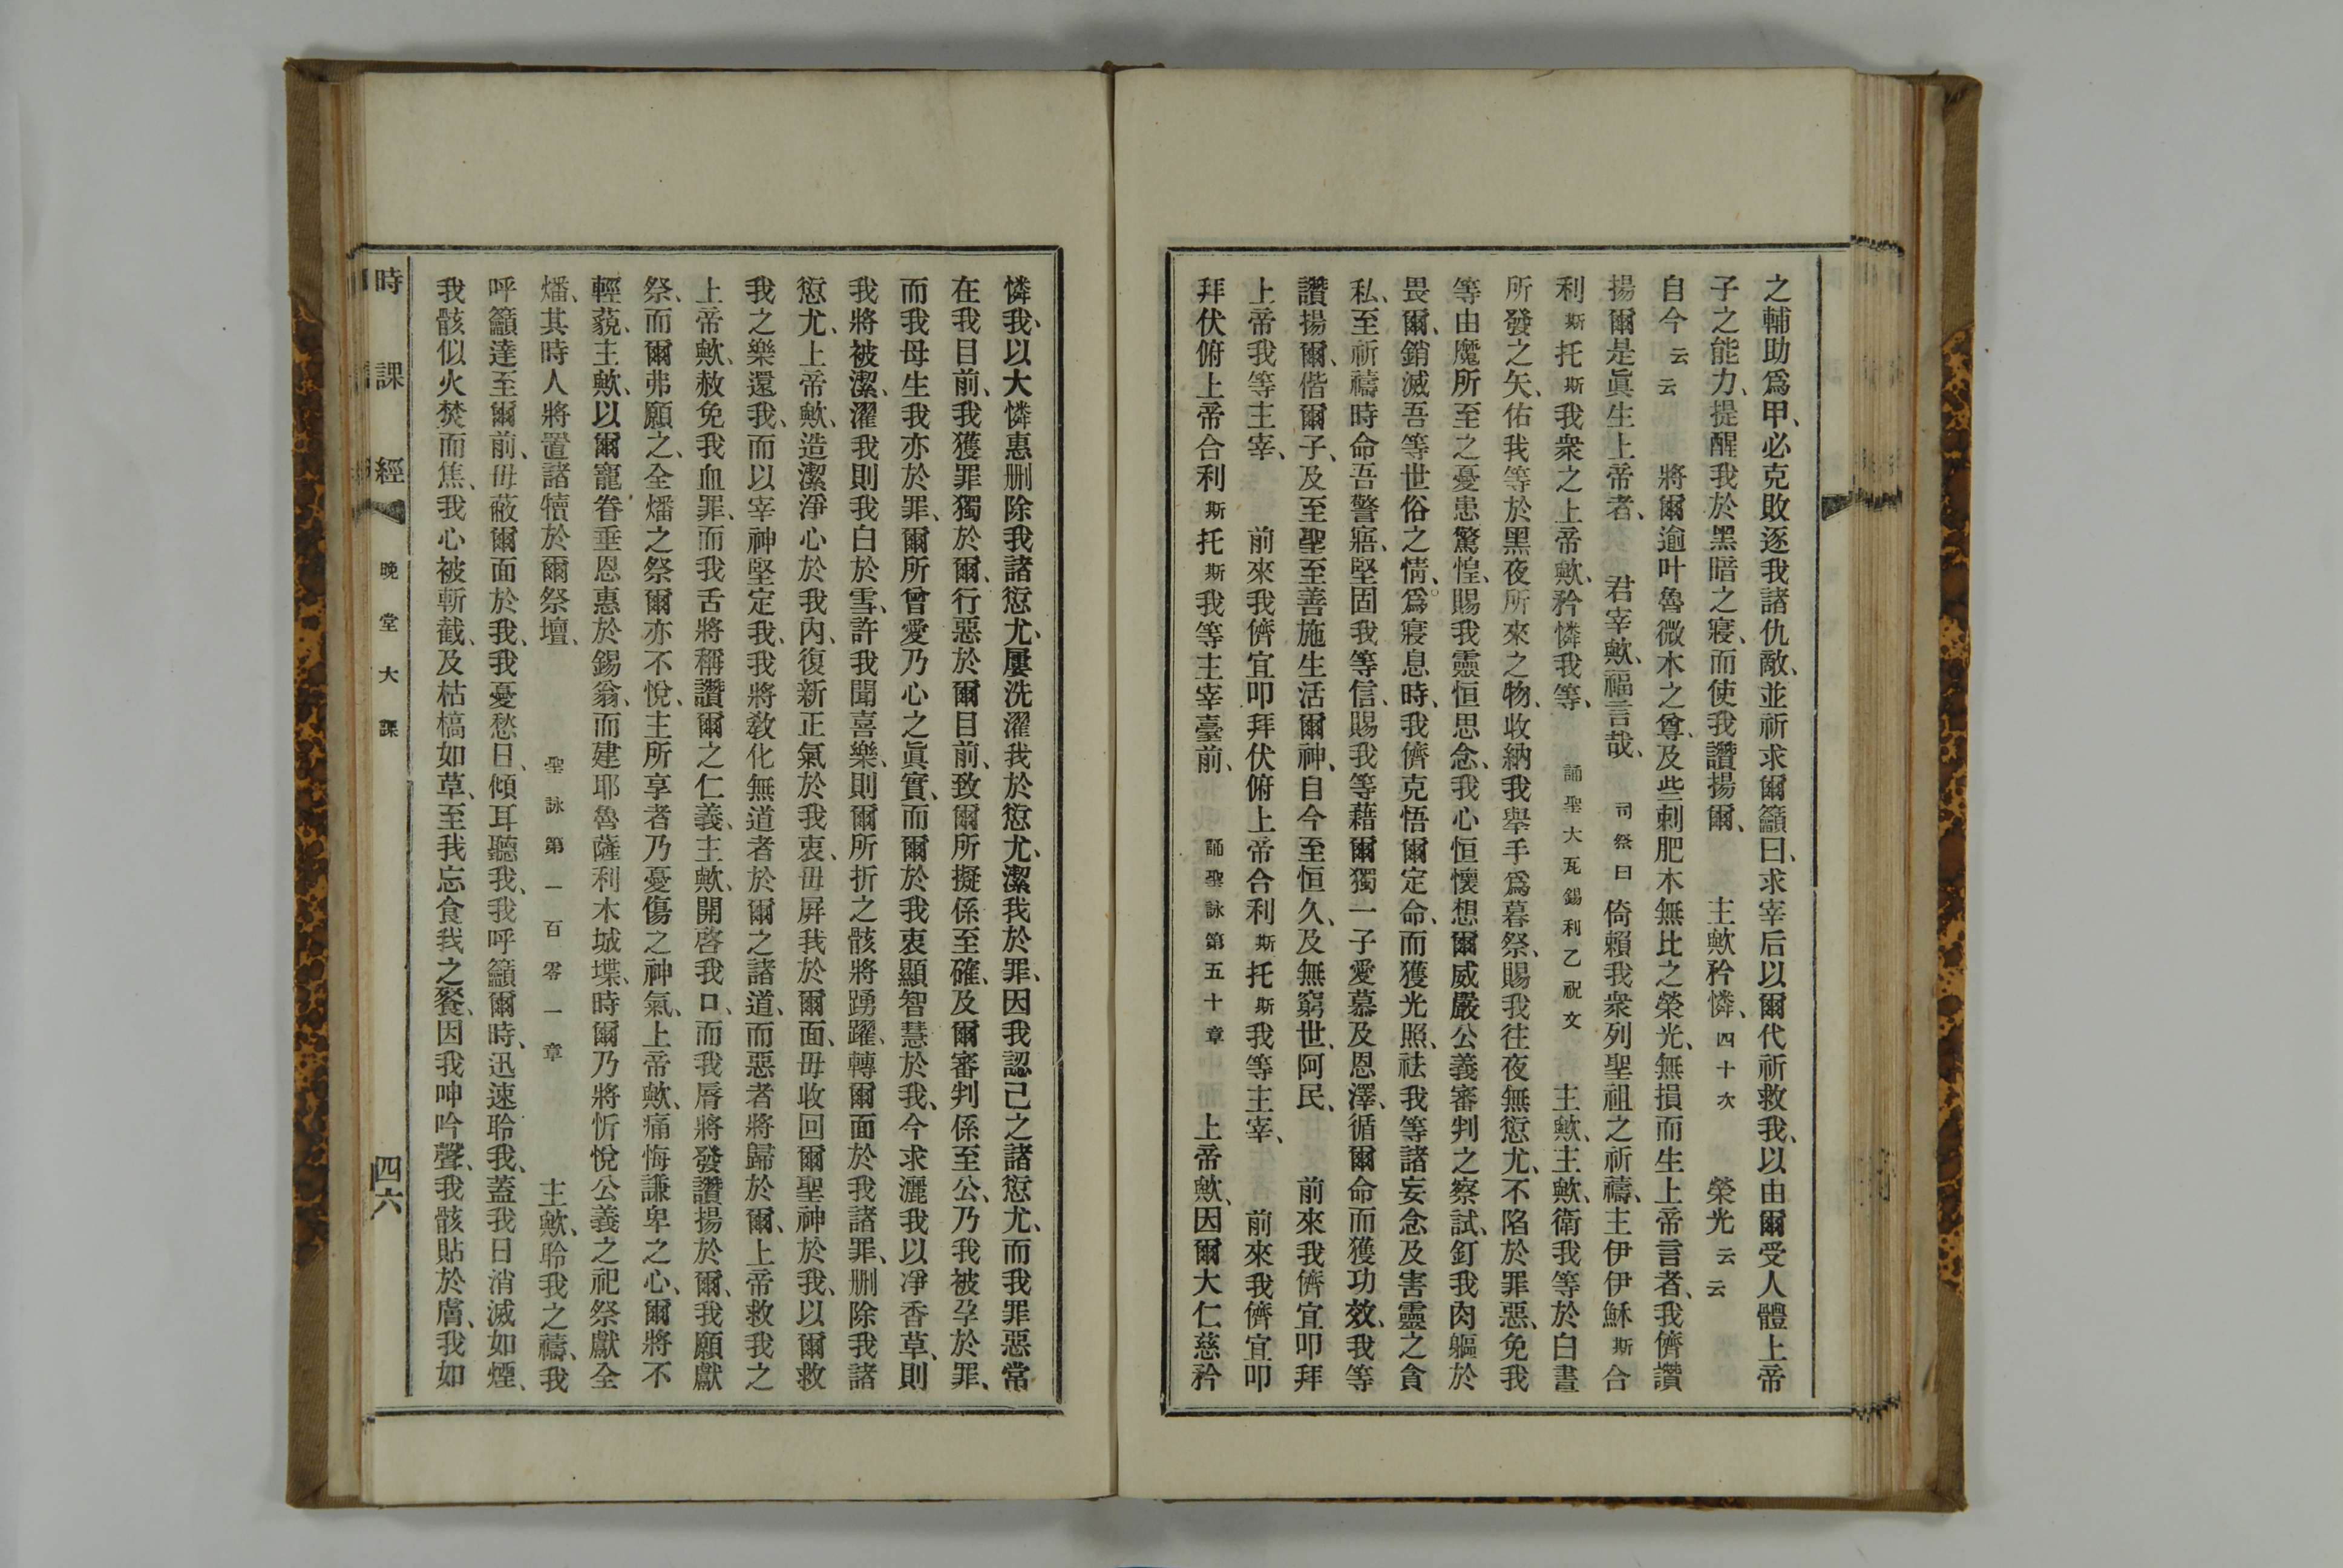 之輔助爲甲、必克敗逐我諸仇敵、並祈求爾籲曰、求宰后以爾代祈救我、以由爾受人體上帝
子之能力、提醒我於黑暗之寢、而使我讚揚爾、　主歟矜憐、四十次　榮光云云
自今云云　將爾逾叶魯微木之尊、及些刺肥木無比之榮光、無損而生上帝言者、我儕讚
揚爾是眞生上帝者、　君宰歟、福言哉、　司祭曰　倚賴我衆列聖祖之祈禱、主伊伊穌斯合
利斯托斯我衆之上帝歟、矜憐我等、　誦聖大瓦錫利乙祝文　主歟、主歟、衛我等於白晝
所發之矢、佑我等於黑夜所來之物、收納我舉手爲暮祭、賜我往夜無愆尤、不陷於罪惡、免我
等由魔所至之憂患驚惶、賜我靈恒思念、我心恒懷想爾威嚴公義審判之察試、釘我肉軀於
畏爾、銷滅吾等世俗之情、爲寢息時、我儕克悟爾定命、而獲光照、祛我等諸妄念及害靈之貪
私、至祈禱時命吾警寤、堅固我等信、賜我等藉爾獨一子愛慕及恩澤、循爾命而獲功效、我等
讚揚爾、偕爾子、及至聖至善施生活爾神、自今至恒久、及無窮世、阿民、　前來我儕宜叩拜
上帝我等主宰、　前來我儕宜叩拜伏俯上帝合利斯托斯我等主宰、　前來我儕宜叩
拜伏俯上帝合利斯托斯我等主宰臺前、　誦聖詠第五十章　上帝歟、因爾大仁慈矜
憐我、以大憐惠删除我諸愆尤、屢洗濯我於愆尤、潔我於罪、因我認己之諸愆尤、而我罪惡常
在我目前、我獲罪獨於爾、行惡於爾目前、致爾所擬係至確、及爾審判係至公、乃我被孕於罪、
而我母生我亦於罪、爾所曾愛乃心之眞實、而爾於我衷顯智慧於我、今求灑我以凈香草、則
我將被潔、濯我則我白於雪、許我聞喜樂、則爾所折之骸將踴躍、轉爾面於我諸罪、删除我諸
愆尤、上帝歟、造潔淨心於我內、復新正氣於我衷、毋屛我於爾面、毋收回爾聖神於我、以爾救
我之樂還我、而以宰神堅定我、我將敎化無道者於爾之諸道、而惡者將歸於爾、上帝救我之
上帝歟、赦免我血罪、而我舌將稱讚爾之仁義、主歟、開啓我口、而我脣將發讚揚於爾、我願獻
祭、而爾弗願之、全燔之祭爾亦不悅、主所享者乃憂傷之神氣、上帝歟、痛悔謙卑之心、爾將不
輕藐、主歟、以爾寵眷垂恩惠於錫翁、而建耶魯薩利木城堞、時爾乃將忻悅公義之祀祭獻全
燔、其時人將置諸犢於爾祭壇、　聖詠第一百零一章　主歟、聆我之禱、我
呼籲達至爾前、毋蔽爾面於我、我憂愁日、傾耳聽我、我呼籲爾時、迅速聆我、蓋我日消滅如煙、
我骸似火焚而焦、我心被斬截、及枯槁如草、至我忘食我之餐、因我呻吟聲、我骸貼於膚、我如
時課經　晚堂大課　四六